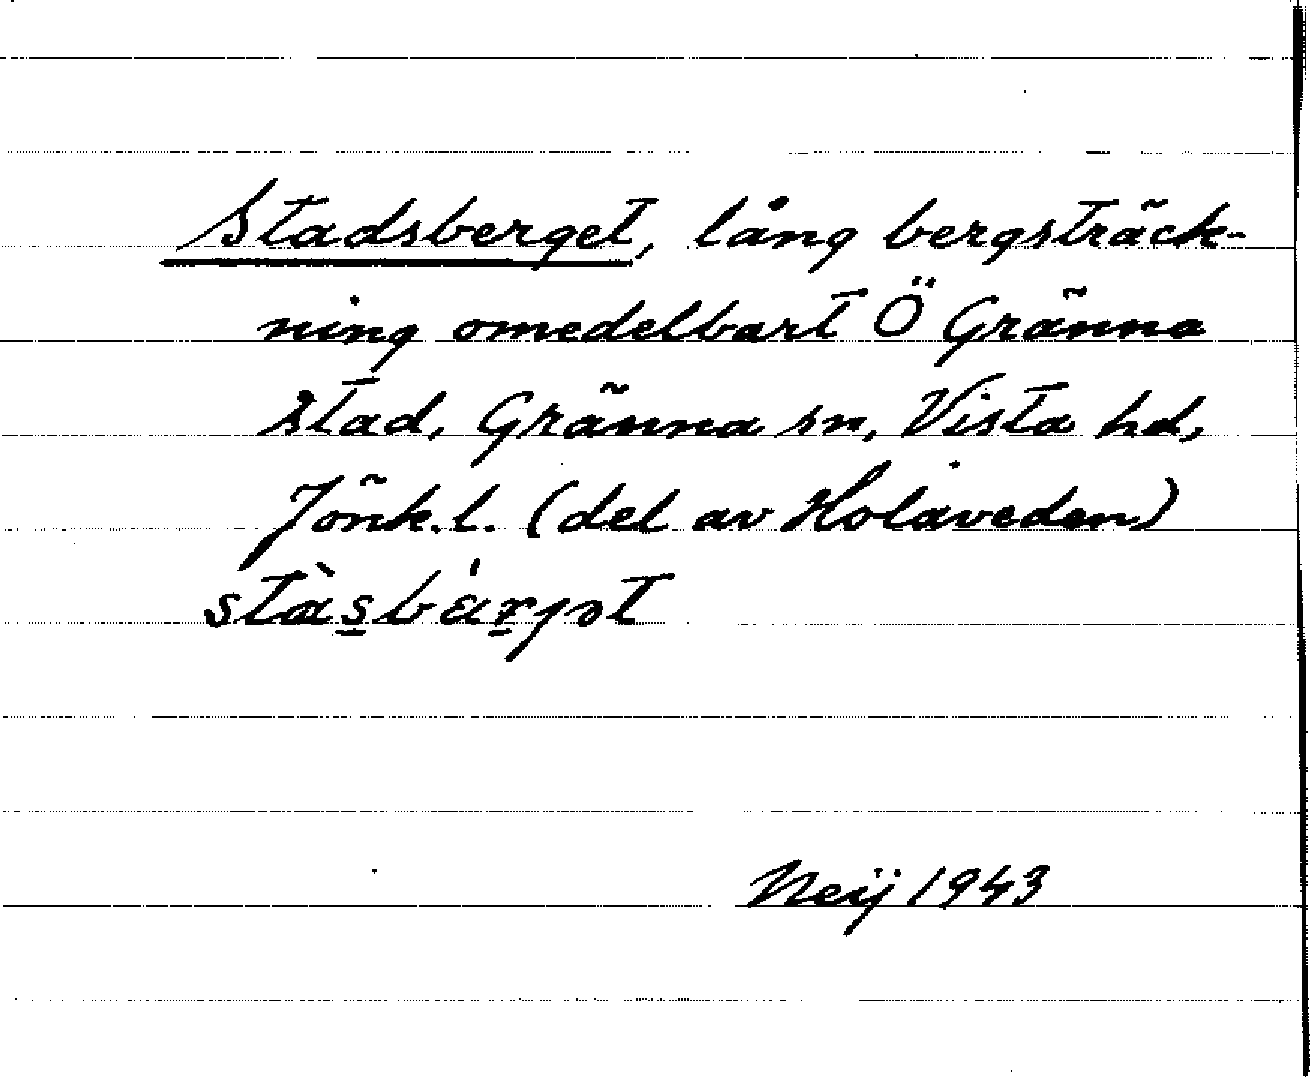 Stadsberget, lång bergsträck-
ning omedelbart Ö Gränna
stad, Gränna sn, Vista hd,
Jönk. l. (del av Holaveden)
Neij 1943